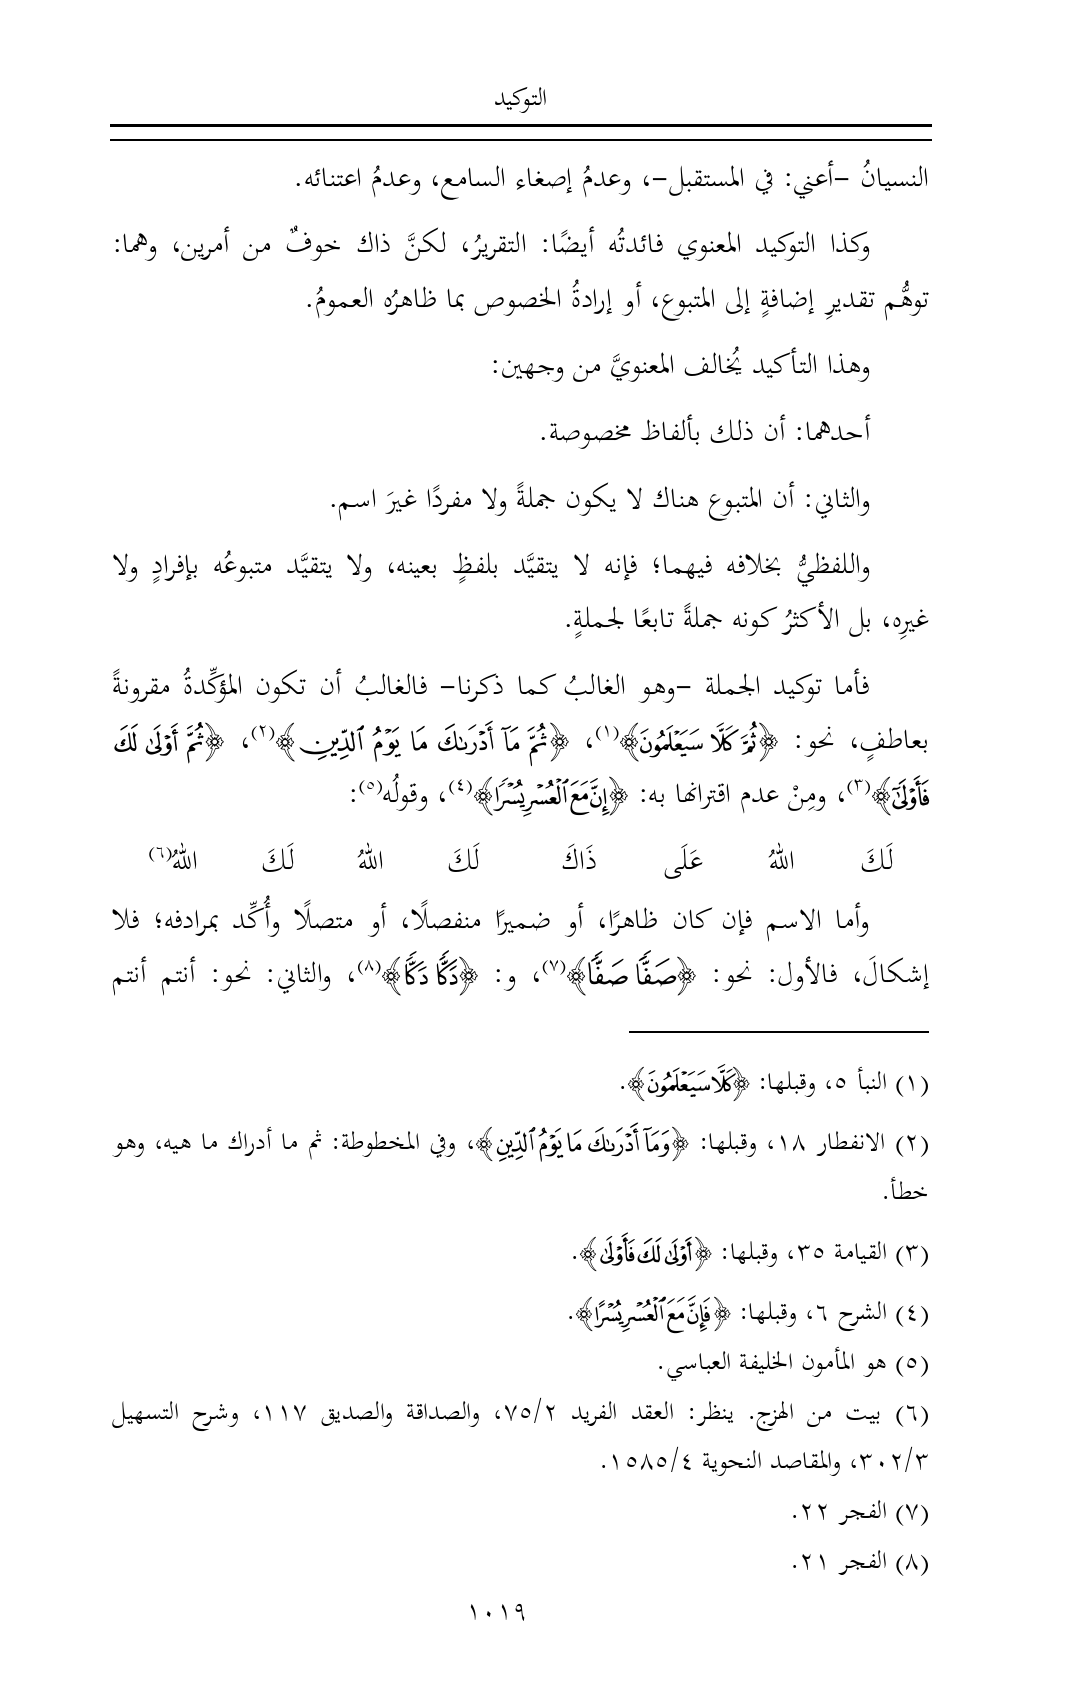 التوكيد
النسيانُ –أعني: في المستقبل–، وعدمُ إصغاء السامع، وعدمُ اعتنائه.
وكذا التوكيد المعنوي فائدتُه أيضًا: التقريرُ، لكنَّ ذاك خوفٌ من أمرين، وهما:
توهُّم تقديرِ إضافةٍ إلى المتبوع، أو إرادةُ الخصوص بما ظاهرُه العمومُ.
وهذا التأكيد يُخالف المعنويَّ من وجهين:
أحدهما: أن ذلك بألفاظ مخصوصة.
والثاني: أن المتبوع هناك لا يكون جملةً ولا مفردًا غيرَ اسم.
واللفظيُّ بخلافه فيهما؛ فإنه لا يتقيَّد بلفظٍ بعينه، ولا يتقيَّد متبوعُه بإفرادٍ ولا
غيرِه، بل الأكثرُ كونه جملةً تابعًا لجملةٍ.
فأما توكيد الجملة –وهو الغالبُ كما ذكرنا– فالغالبُ أن تكون المؤكِّدةُ مقرونةً
بعاطفٍ، نحو: ﴿ثُمَّ كَلَّا سَيَعْلَمُونَ﴾(١)، ﴿ثُمَّ مَآ أَدْرَىٰكَ مَا يَوْمُ ٱلدِّينِ﴾(٢)، ﴿ثُمَّ أَوْلَىٰ لَكَ
فَأَوْلَىٰٓ﴾(٣)، ومِنْ عدم اقترانها به: ﴿إِنَّ مَعَ ٱلْعُسْرِ يُسْرًا﴾(٤)، وقولُه(٥):
لَكَ اللهُ عَلَى ذَاكَ لَكَ اللهُ لَكَ اللهُ(٦)
وأما الاسم فإن كان ظاهرًا، أو ضميرًا منفصلًا، أو متصلًا وأُكِّد بمرادفه؛ فلا
إشكالَ، فالأول: نحو: ﴿صَفًّا صَفًّا﴾(٧)، و: ﴿دَكًّا دَكًّا﴾(٨)، والثاني: نحو: أنتم أنتم
(١) النبأ ٥، وقبلها: ﴿كَلَّا سَيَعْلَمُونَ﴾.
(٢) الانفطار ١٨، وقبلها: ﴿وَمَآ أَدْرَىٰكَ مَا يَوْمُ ٱلدِّينِ﴾، وفي المخطوطة: ثم ما أدراك ما هيه، وهو
خطأ.
(٣) القيامة ٣٥، وقبلها: ﴿أَوْلَىٰ لَكَ فَأَوْلَىٰ﴾.
(٤) الشرح ٦، وقبلها: ﴿فَإِنَّ مَعَ ٱلْعُسْرِ يُسْرًا﴾.
(٥) هو المأمون الخليفة العباسي.
(٦) بيت من الهزج. ينظر: العقد الفريد ٧٥/٢، والصداقة والصديق ١١٧، وشرح التسهيل
٣٠٢/٣، والمقاصد النحوية ١٥٨٥/٤.
(٧) الفجر ٢٢.
(٨) الفجر ٢١.
١٠١٩